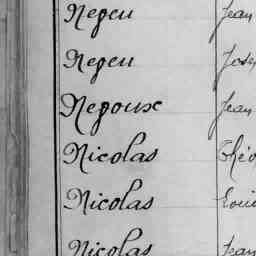 Negeu Jean
Negeu Jose
Nepoux Jean
Nicolas Théo
Nicolas Loui
Nicolas Jean